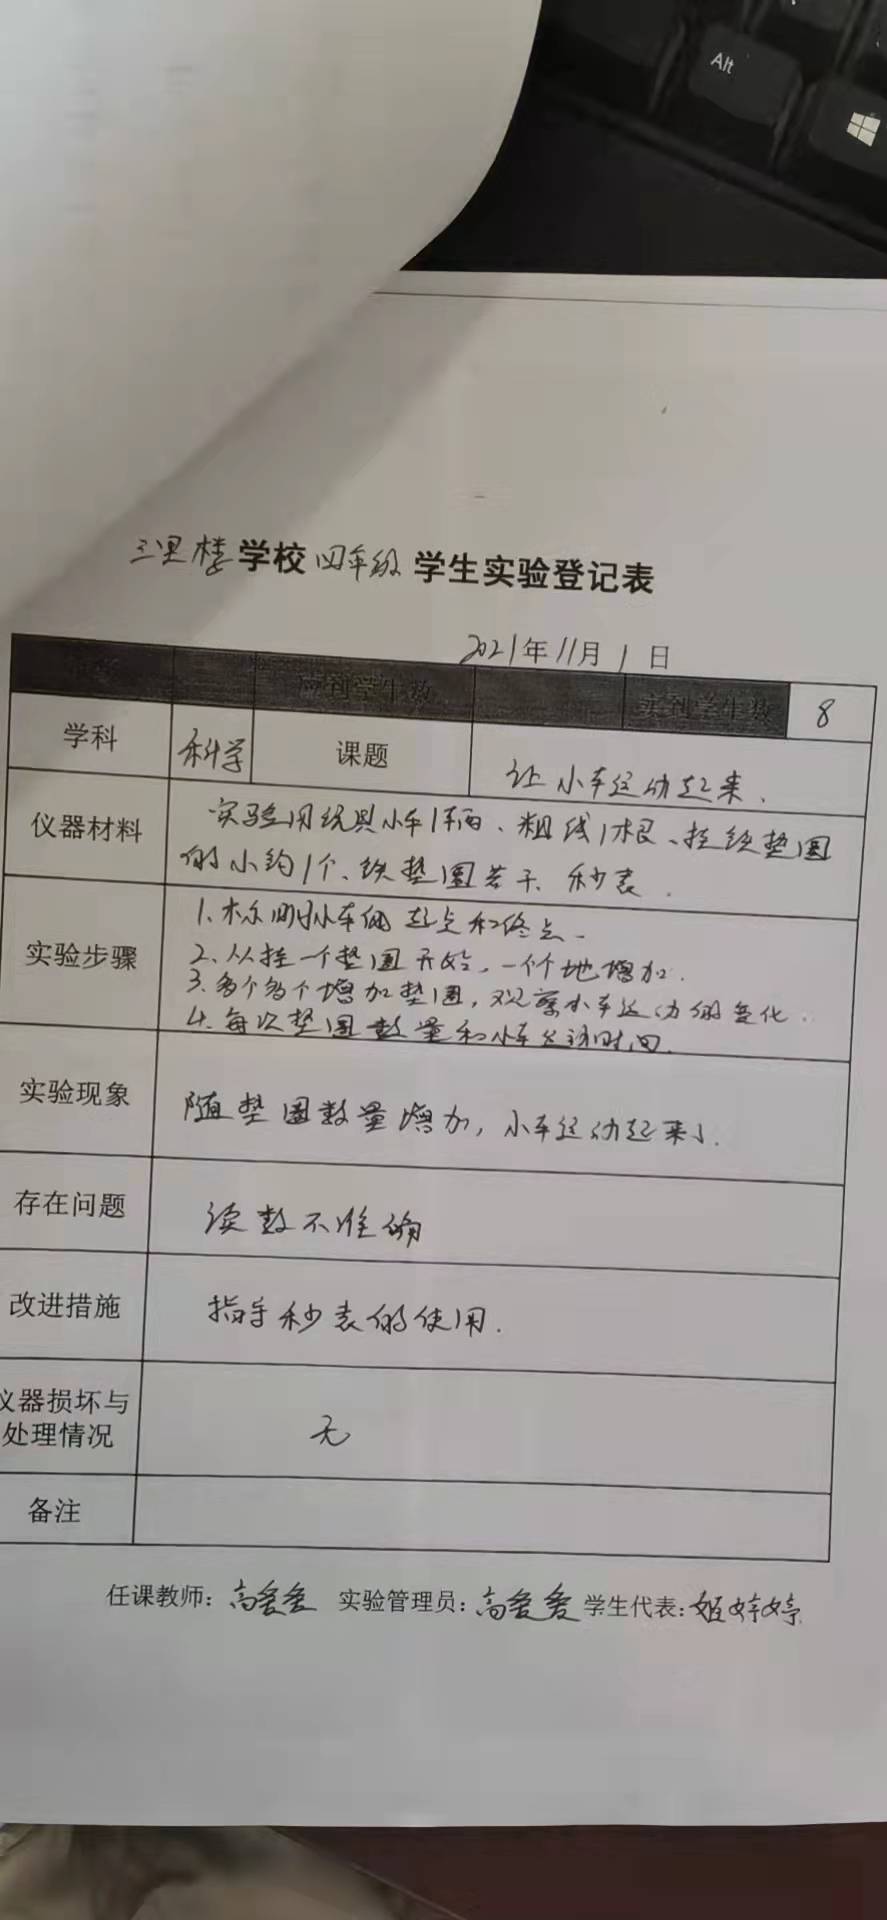 Alt
三里楼学校四年级学生实验登记表
2021年11月1日
应到学生数 实到学生数 8
学科 科学 课题 让小车运动起来.
仪器材料 实验用玩具小车1辆、粗线1根、挂铁垫圈
的小钩1个、铁垫圈若干、秒表.
实验步骤
1.标明小车的起点和终点.
2.从挂一个垫圈开始,一个个地增加.
3.多个多个增加垫圈,观察小车运动的变化.
4.每次垫圈数量和小车运动时间.
实验现象 随垫圈数量增加,小车运动起来了.
存在问题 读数不准确
改进措施 指导秒表的使用.
仪器损坏与
处理情况 无
备注
任课教师:高爱爱 实验管理员:高爱爱 学生代表:姬婷婷